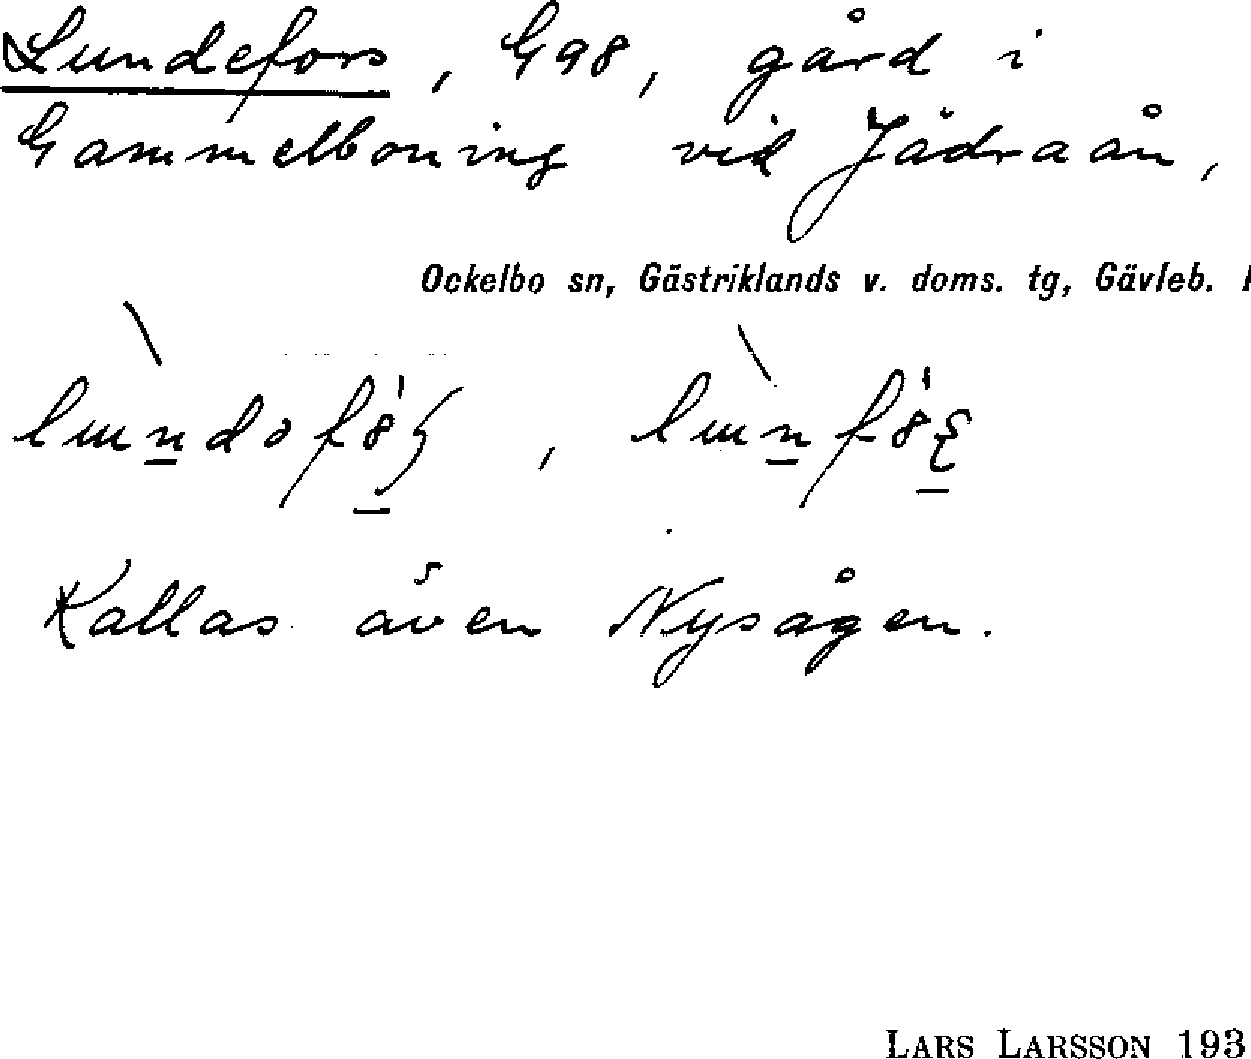 Lundefors, G98, gård i
Gammelboning vid Jädraån,
Ockelbo sn, Gästriklands v. doms. tg, Gävleb.
Kallas även Nysågen.
LARS LARSSON 193